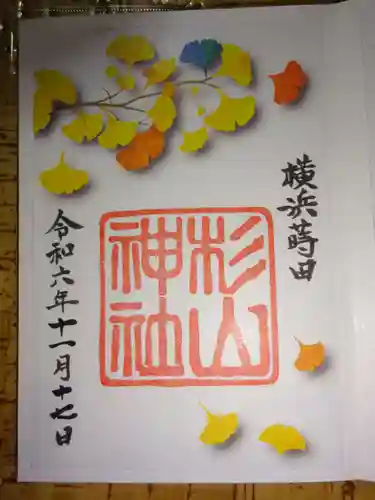 横浜蒔田
杉山
神社
令和六年十一月十七日